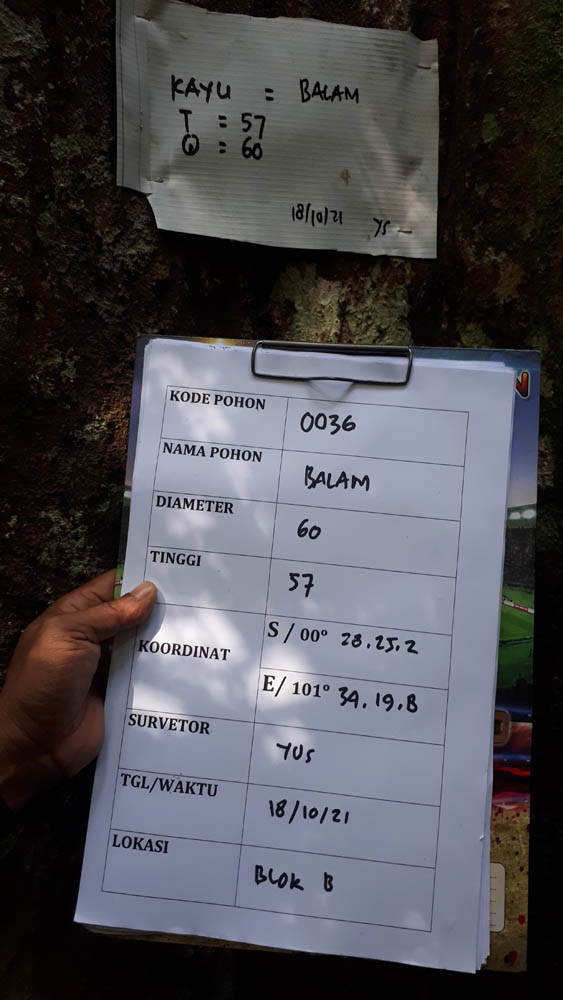 KAYU = BALAM
T = 57
Q = 60
18/10/21 YS
KODE POHON 0036
NAMA POHON BALAM
DIAMETER 60
TINGGI 57
KOORDINAT
S / 00° 28.25.2
E/ 101° 34.19.8
SURVETOR YUS
TGL/WAKTU 18/10/21
LOKASI BLOK B